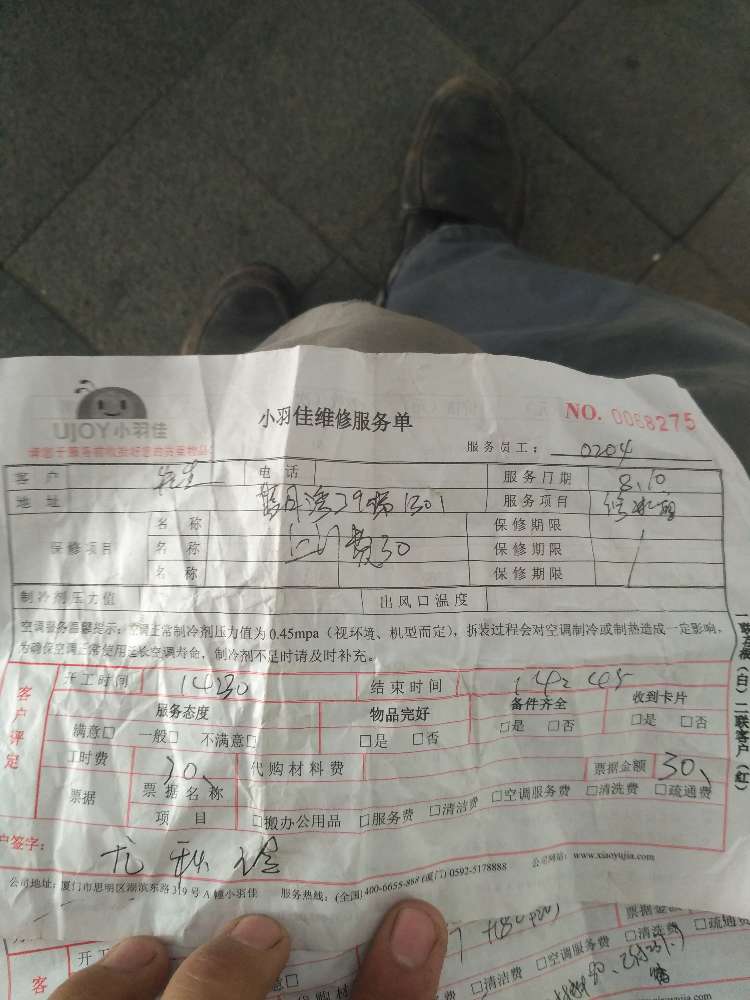 UJOY小羽佳
请您于服务前收拾好您的贵重物品
小羽佳维修服务单
NO. 0068275
服务员工: 0204
客户 先生 电话 服务日期 8.10
地址 29幢1301 服务项目 修冰箱
保修项目
名称 上门费30 保修期限
名称 保修期限
名称 保修期限
制冷剂压力值 出风口温度
空调服务温馨提示:空调正常制冷剂压力值为0.45mpa(视环境、机型而定),拆装过程会对空调制冷或制热造成一定影响,
为确保空调正常使用延长空调寿命,制冷剂不足时请及时补充。
客户评定
开工时间 14:30 结束时间 14:45
服务态度 物品完好 备件齐全 收到卡片
满意□ 一般□ 不满意□ □是 □否 □是 □否 □是 □否
工时费 30、 代购材料费 票据金额 30、
票据 票据名称
项目 □搬办公用品 □服务费 □清洁费 □空调服务费 □清洗费 □疏通费
户签字:
公司地址:厦门市思明区湖滨东路319号A幢小羽佳 服务热线:(全国)400-6655-868 (厦门) 0592-5178888 公司网站:www.xiaoyujia.com
(白) 二联客户(红)
票据金额
开工
客
□清洁费 □空调服务费 □清洗费 □疏通